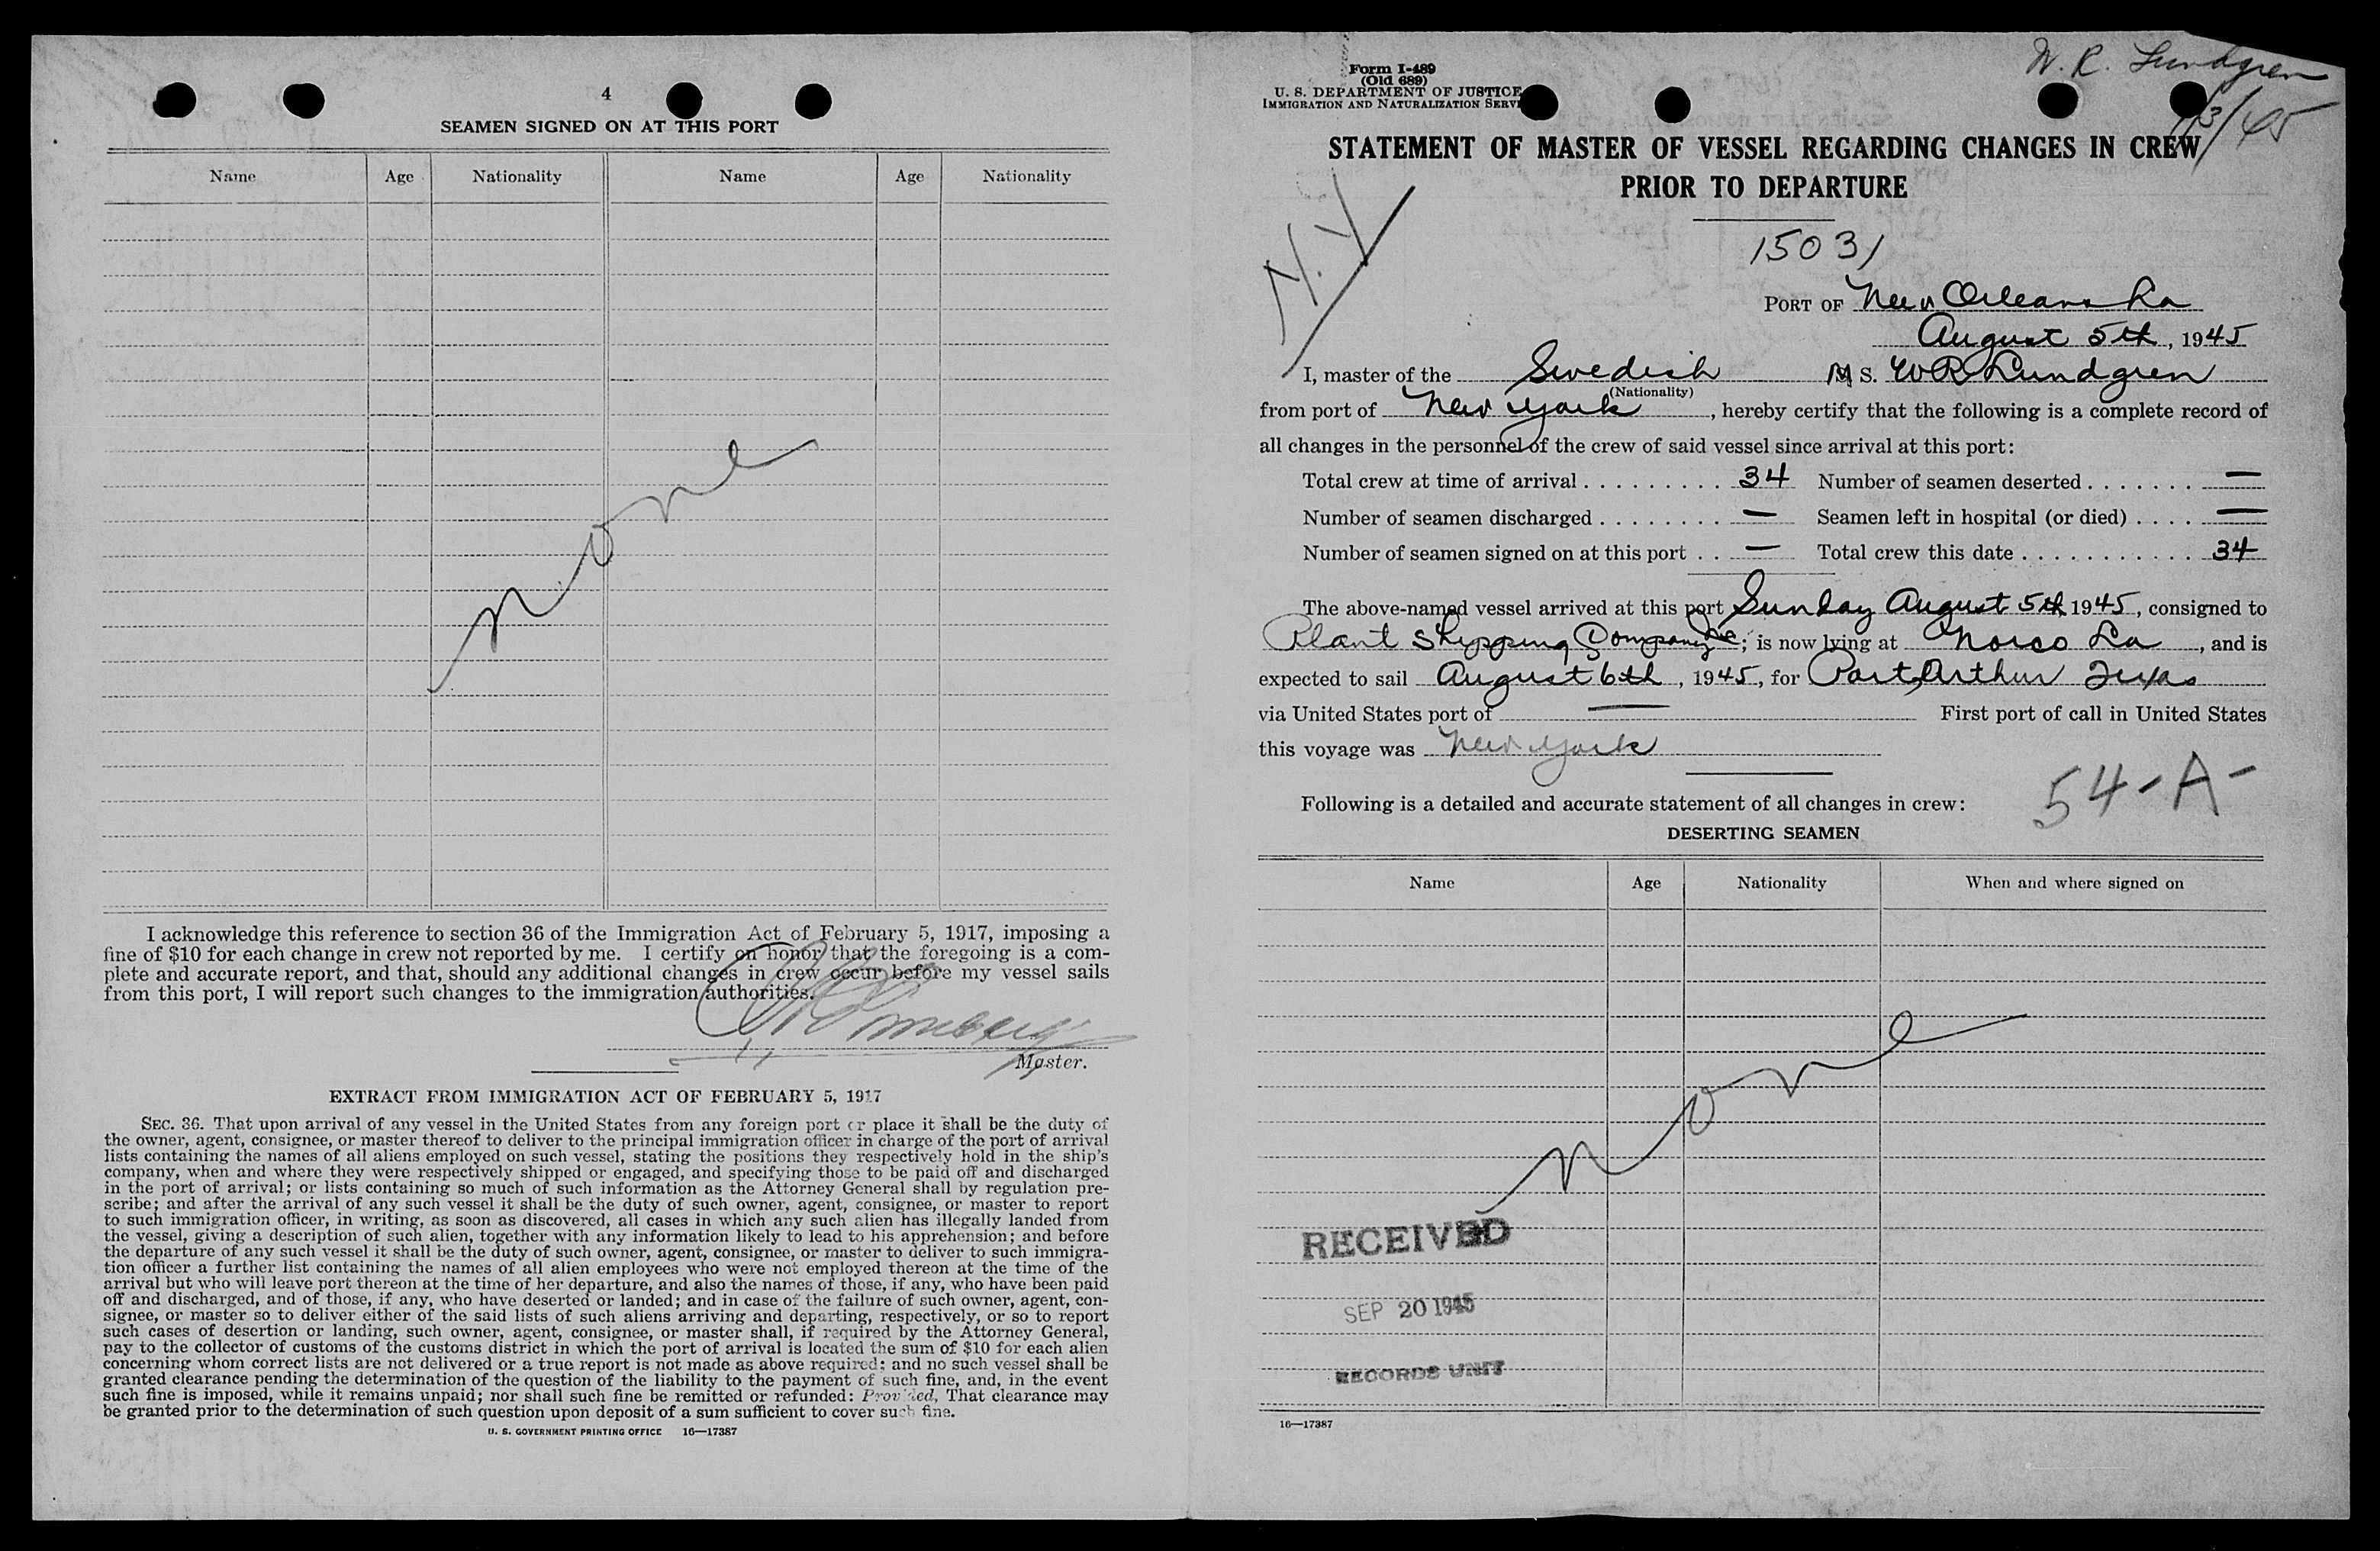 4
SEAMEN SIGNED ON AT THIS PORT
Name Age Nationality Name Age Nationality
none
I acknowledge this reference to section 36 of the Immigration Act of February 5, 1917, imposing a
fine of $10 for each change in crew not reported by me. I certify on honor that the foregoing is a com-
plete and accurate report, and that, should any additional changes in crew occur before my vessel sails
from this port, I will report such changes to the immigration authorities.
Master.
EXTRACT FROM IMMIGRATION ACT OF FEBRUARY 5, 1917
SEC. 36. That upon arrival of any vessel in the United States from any foreign port or place it shall be the duty of
the owner, agent, consignee, or master thereof to deliver to the principal immigration officer in charge of the port of arrival
lists containing the names of all aliens employed on such vessel, stating the positions they respectively hold in the ship's
company, when and where they were respectively shipped or engaged, and specifying those to be paid off and discharged
in the port of arrival; or lists containing so much of such information as the Attorney General shall by regulation pre-
scribe; and after the arrival of any such vessel it shall be the duty of such owner, agent, consignee, or master to report
to such immigration officer, in writing, as soon as discovered, all cases in which any such alien has illegally landed from
the vessel, giving a description of such alien, together with any information likely to lead to his apprehension; and before
the departure of any such vessel it shall be the duty of such owner, agent, consignee, or master to deliver to such immigra-
tion officer a further list containing the names of all alien employees who were not employed thereon at the time of the
arrival but who will leave port thereon at the time of her departure, and also the names of those, if any, who have been paid
off and discharged, and of those, if any, who have deserted or landed; and in case of the failure of such owner, agent, con-
signee, or master so to deliver either of the said lists of such aliens arriving and departing, respectively, or so to report
such cases of desertion or landing, such owner, agent, consignee, or master shall, if required by the Attorney General,
pay to the collector of customs of the customs district in which the port of arrival is located the sum of $10 for each alien
concerning whom correct lists are not delivered or a true report is not made as above required; and no such vessel shall be
granted clearance pending the determination of the question of the liability to the payment of such fine, and, in the event
such fine is imposed, while it remains unpaid; nor shall such fine be remitted or refunded: Provided, That clearance may
be granted prior to the determination of such question upon deposit of a sum sufficient to cover such fine.
U. S. GOVERNMENT PRINTING OFFICE 16—17387
W. R. Lundgren
Form I-489
(Old 689)
U. S. DEPARTMENT OF JUSTICE
IMMIGRATION AND NATURALIZATION SERVI
STATEMENT OF MASTER OF VESSEL REGARDING CHANGES IN CREW
PRIOR TO DEPARTURE
N.Y
15031
PORT OF New Orleans La
August 5th, 1945
I, master of the Swedish M S. W R Lundgren
(Nationality)
from port of New York, hereby certify that the following is a complete record of
all changes in the personnel of the crew of said vessel since arrival at this port:
Total crew at time of arrival . . . . . . . . . 34 Number of seamen deserted . . . . . . . —
Number of seamen discharged . . . . . . . . — Seamen left in hospital (or died) . . . . —
Number of seamen signed on at this port . . — Total crew this date . . . . . . . . . . . . 34
The above-named vessel arrived at this port Sunday August 5th 1945, consigned to
Plant Shipping Company Inc; is now lying at Norco La, and is
expected to sail August 6th, 1945, for Port Arthur Texas
via United States port of — First port of call in United States
this voyage was New York
54-A-
Following is a detailed and accurate statement of all changes in crew:
DESERTING SEAMEN
Name Age Nationality When and where signed on
none
RECEIVED
SEP 20 1945
RECORDS UNIT
16—17387